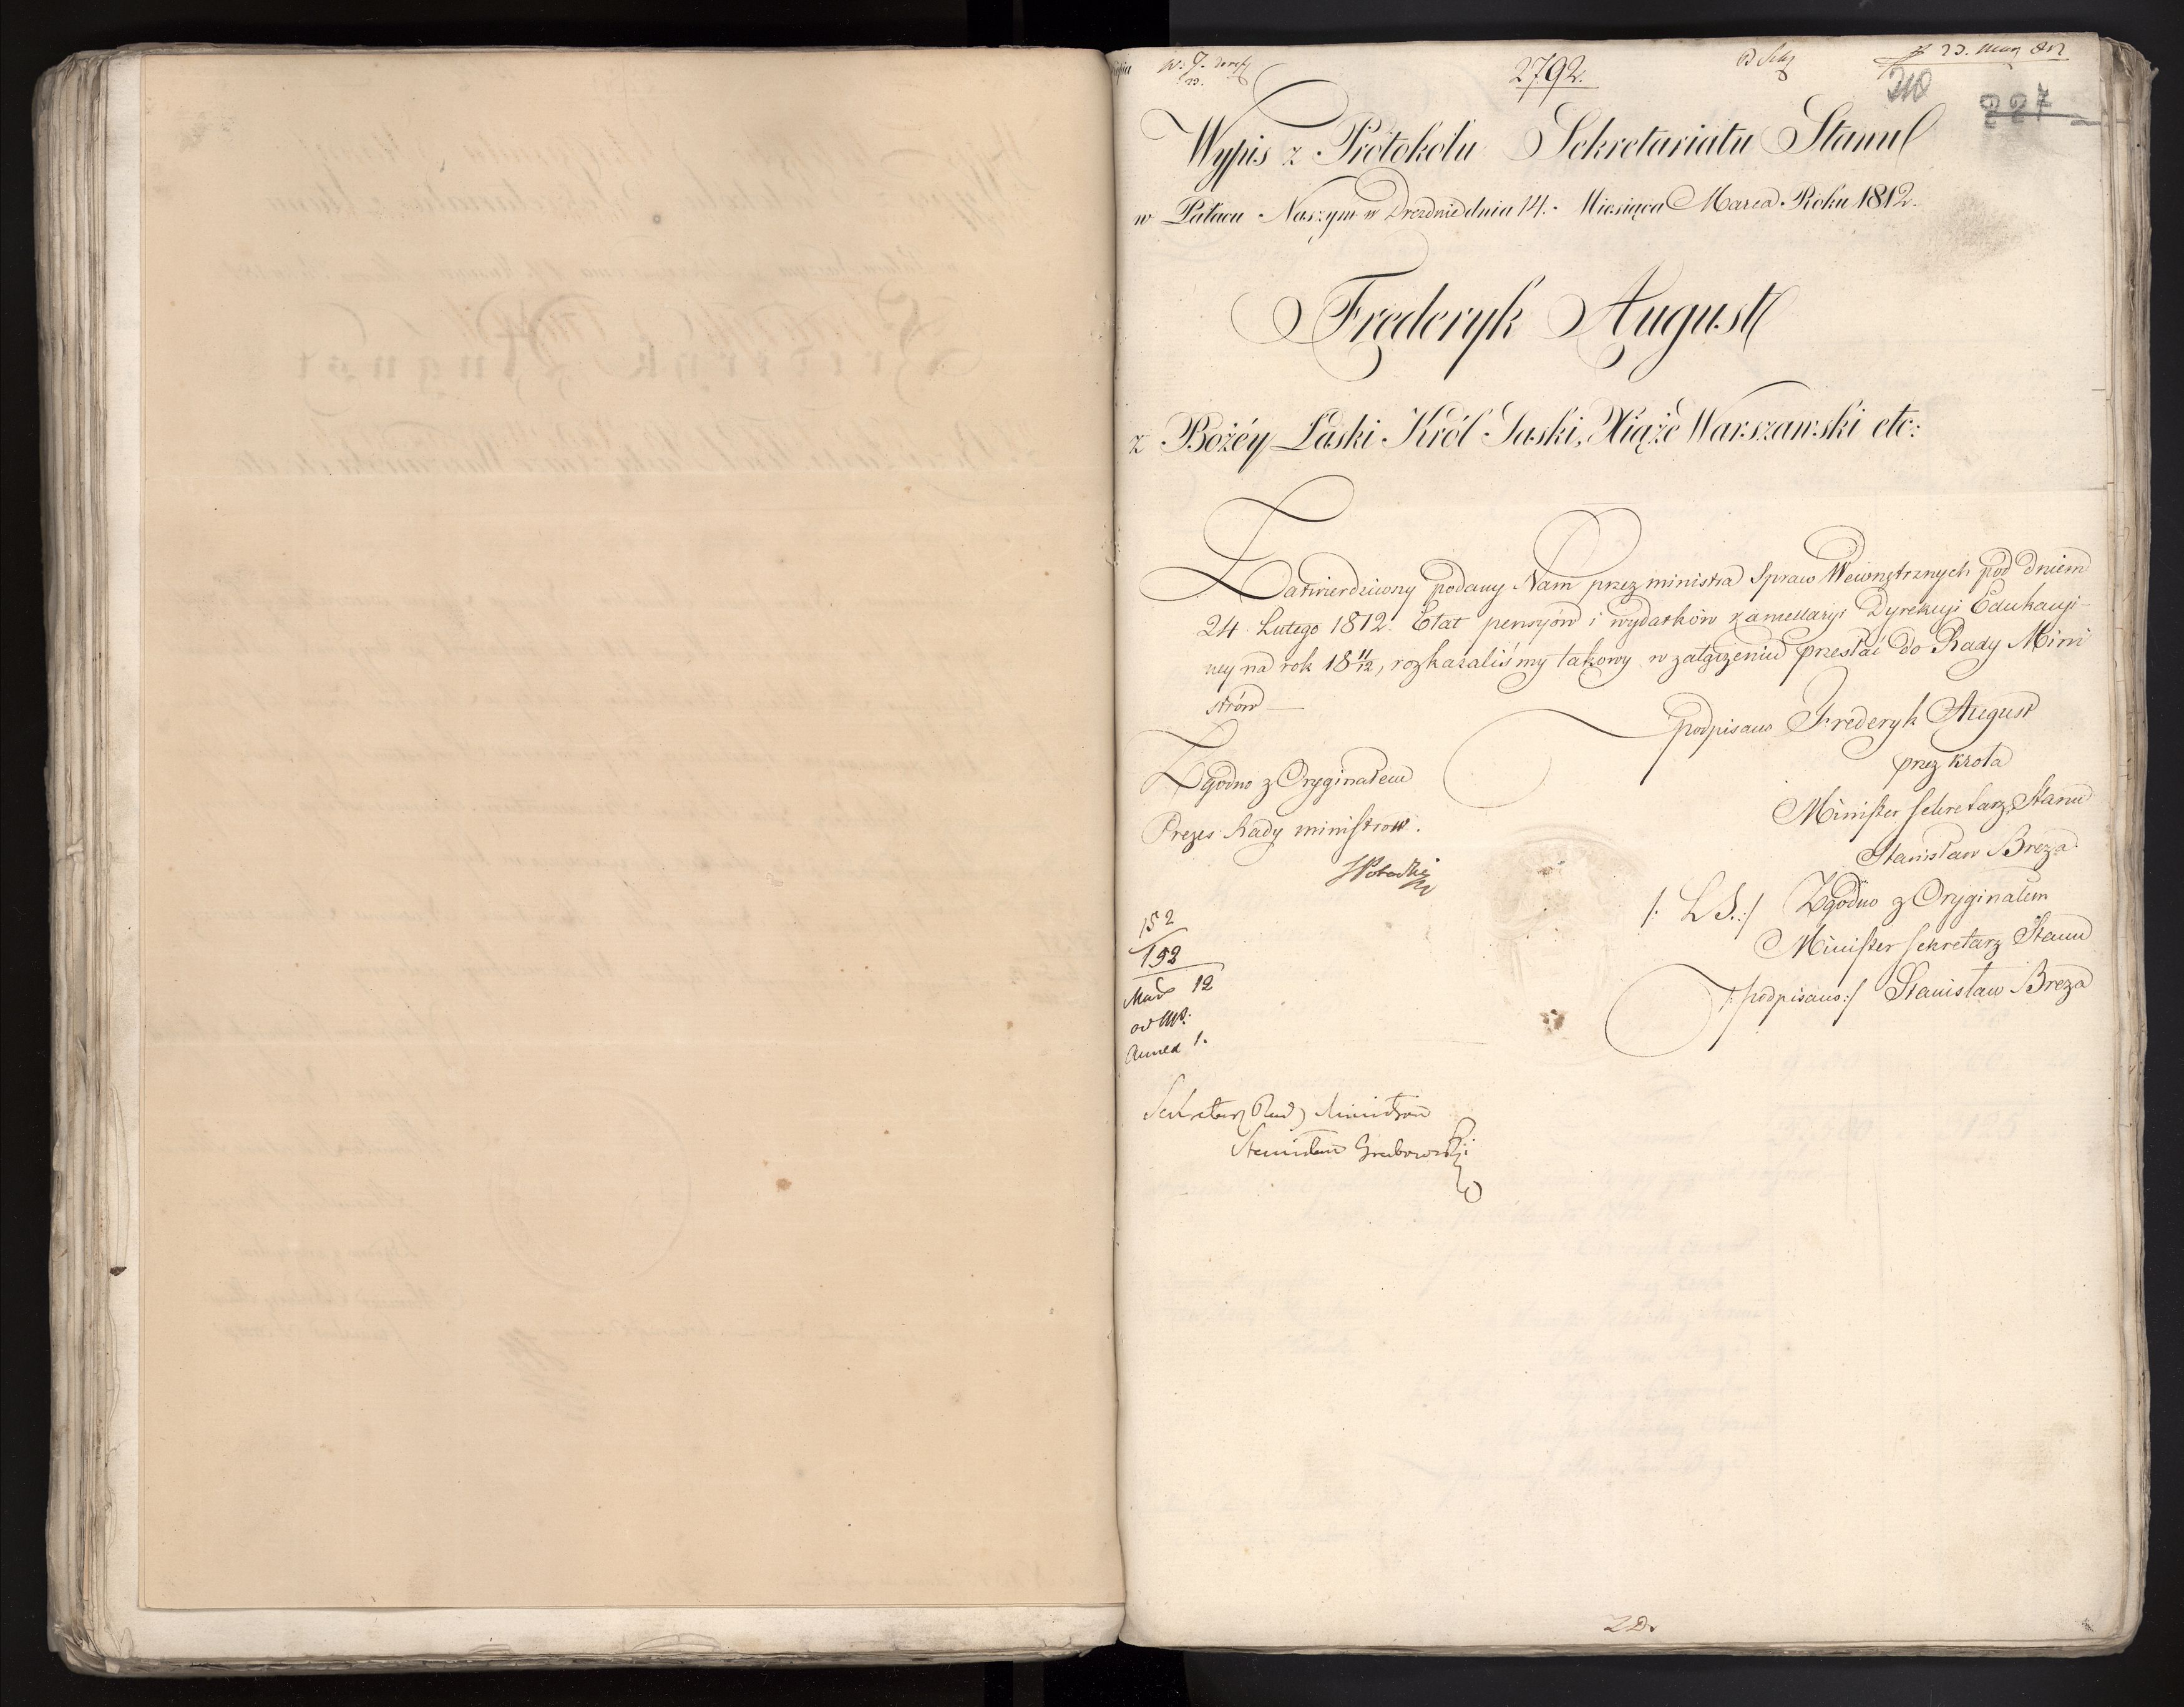 2792.
23. Marz 812
218
227
Wypis z Protokołu Sekretariatu Stanu
w Pałacu Naszym w Dreznie dnia 14. Miesiąca Marca Roku 1812.
Frederyk August
z Bożéy Łaski Król Saski, Xiąże Warszawski etc:
Zatwierdziwszy podany Nam przez ministra Spraw Wewnętrznych pod dniem
24 Lutego 1812. Etat pensyów i wydatków kancellaryi Dyrekcyi Edukacyi-
ney na rok 18 11/12, rozkazaliśmy takowy w załączeniu przesłać do Rady Mini
strów
podpisano Frederyk August
przez Króla
Minister Sekretarz Stanu
Stanisław Breza.
/: LS.:/ Zgodno z Oryginałem
Minister Sekretarz Stanu
/:podpisano:/ Stanisław Breza
Zgodno z Oryginałem
Prezes Rady ministrow.
152
153
12
1.
Sekretarz Rady Ministrow
Stanisław Grabowski